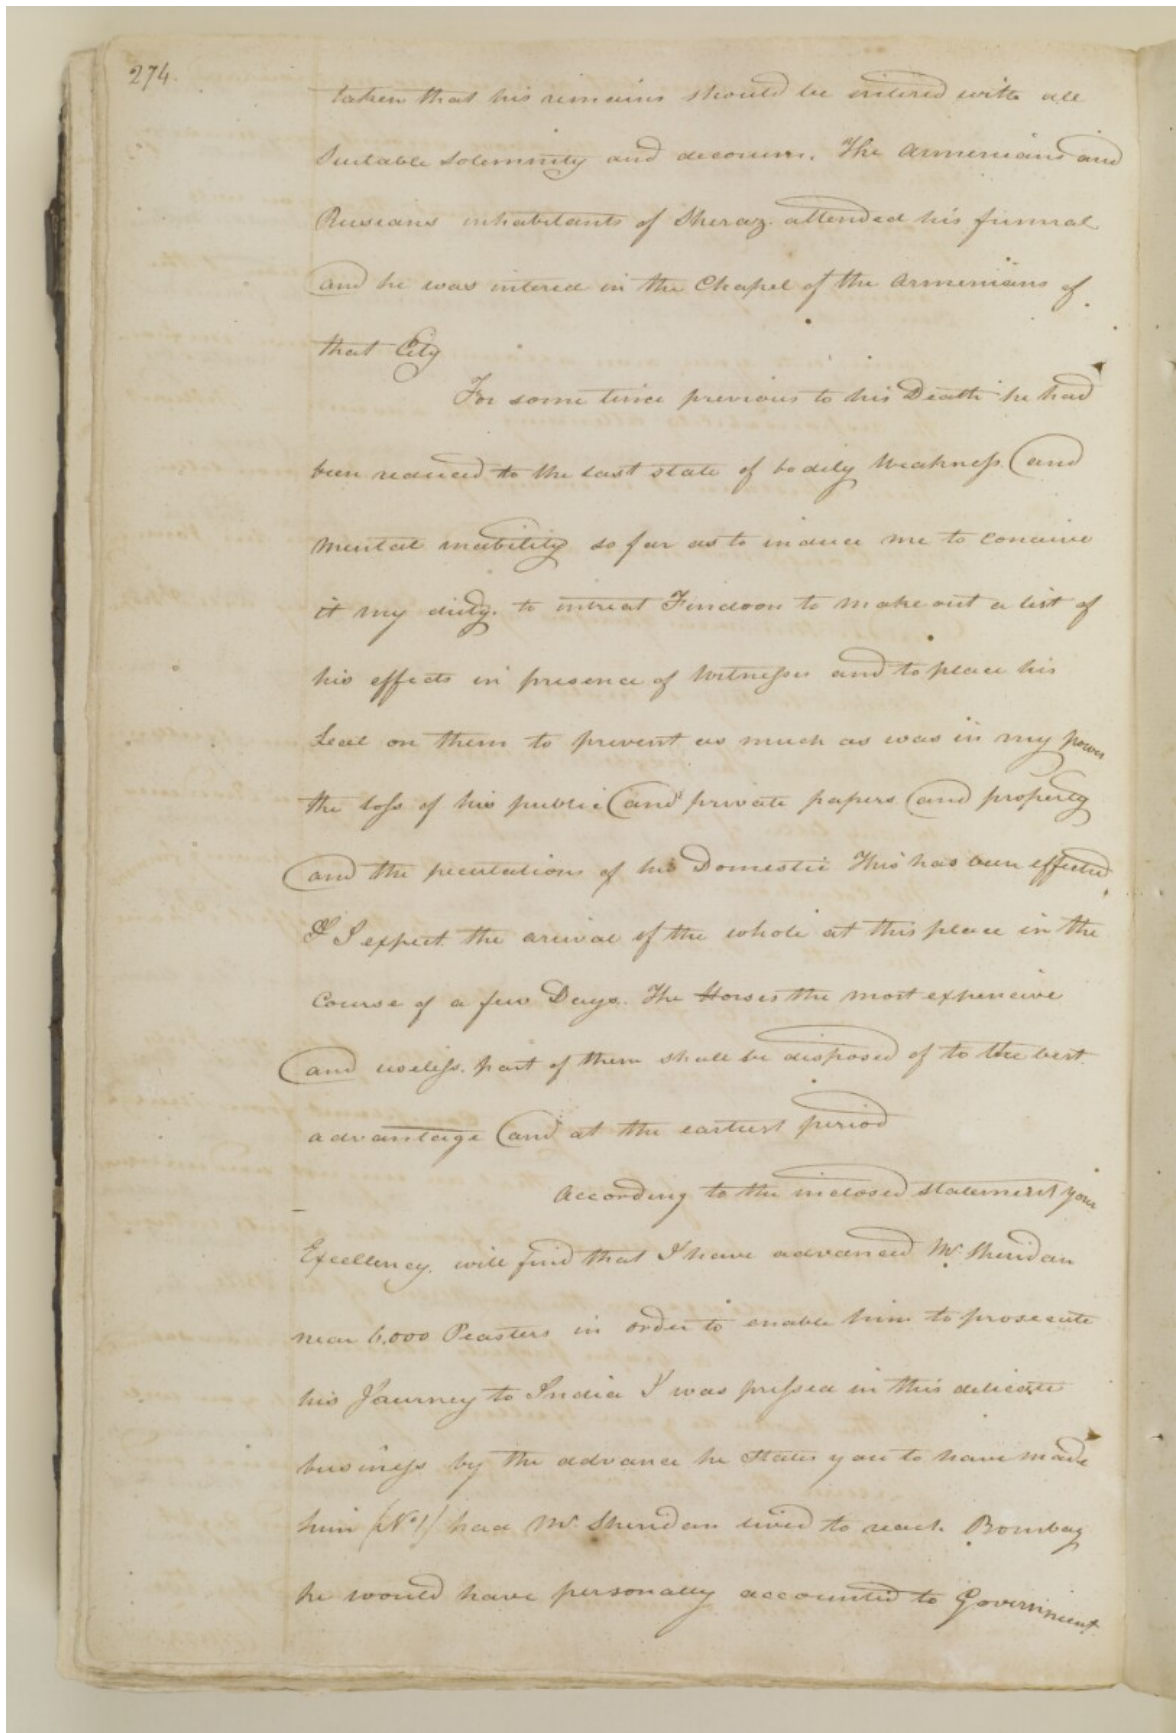 274.
taken that his remains should be intered with all
Suitable Solemnity and decorum. The Armenians and
Russians inhabitants of Sheraz attended his funeral
and he was intered in the Chapel of the Armenians of
that City
For some time previous to his Death he had
been reduced to the last state of bodily Weakness and
Mental inability so far as to induce me to Concieve
it my duty to intreat to make out a list of
his effects in presence of Witnesses and to place his
Seal on them to prevent as much as was in my power
the loss of his public and private papers and property
and the peculations of his Domestic This has been effected
& I expect the arrival of the whole at this place in the
Course of a few Days. The Horses the most expencive
and useless part of them shall be disposed of to the best
advantage and at the earliest period
According to the inclosed statement your
Excellency will find that I have advanced Mr. Sheridan
near 6,000 Peasters in order to enable him to prosecute
his Journey to India I was pressed in this delicate
business by the advance he States you to have made
him (No. 1) had Mr. Sheridan lived to reach Bombay
he would have personally accounted to Government